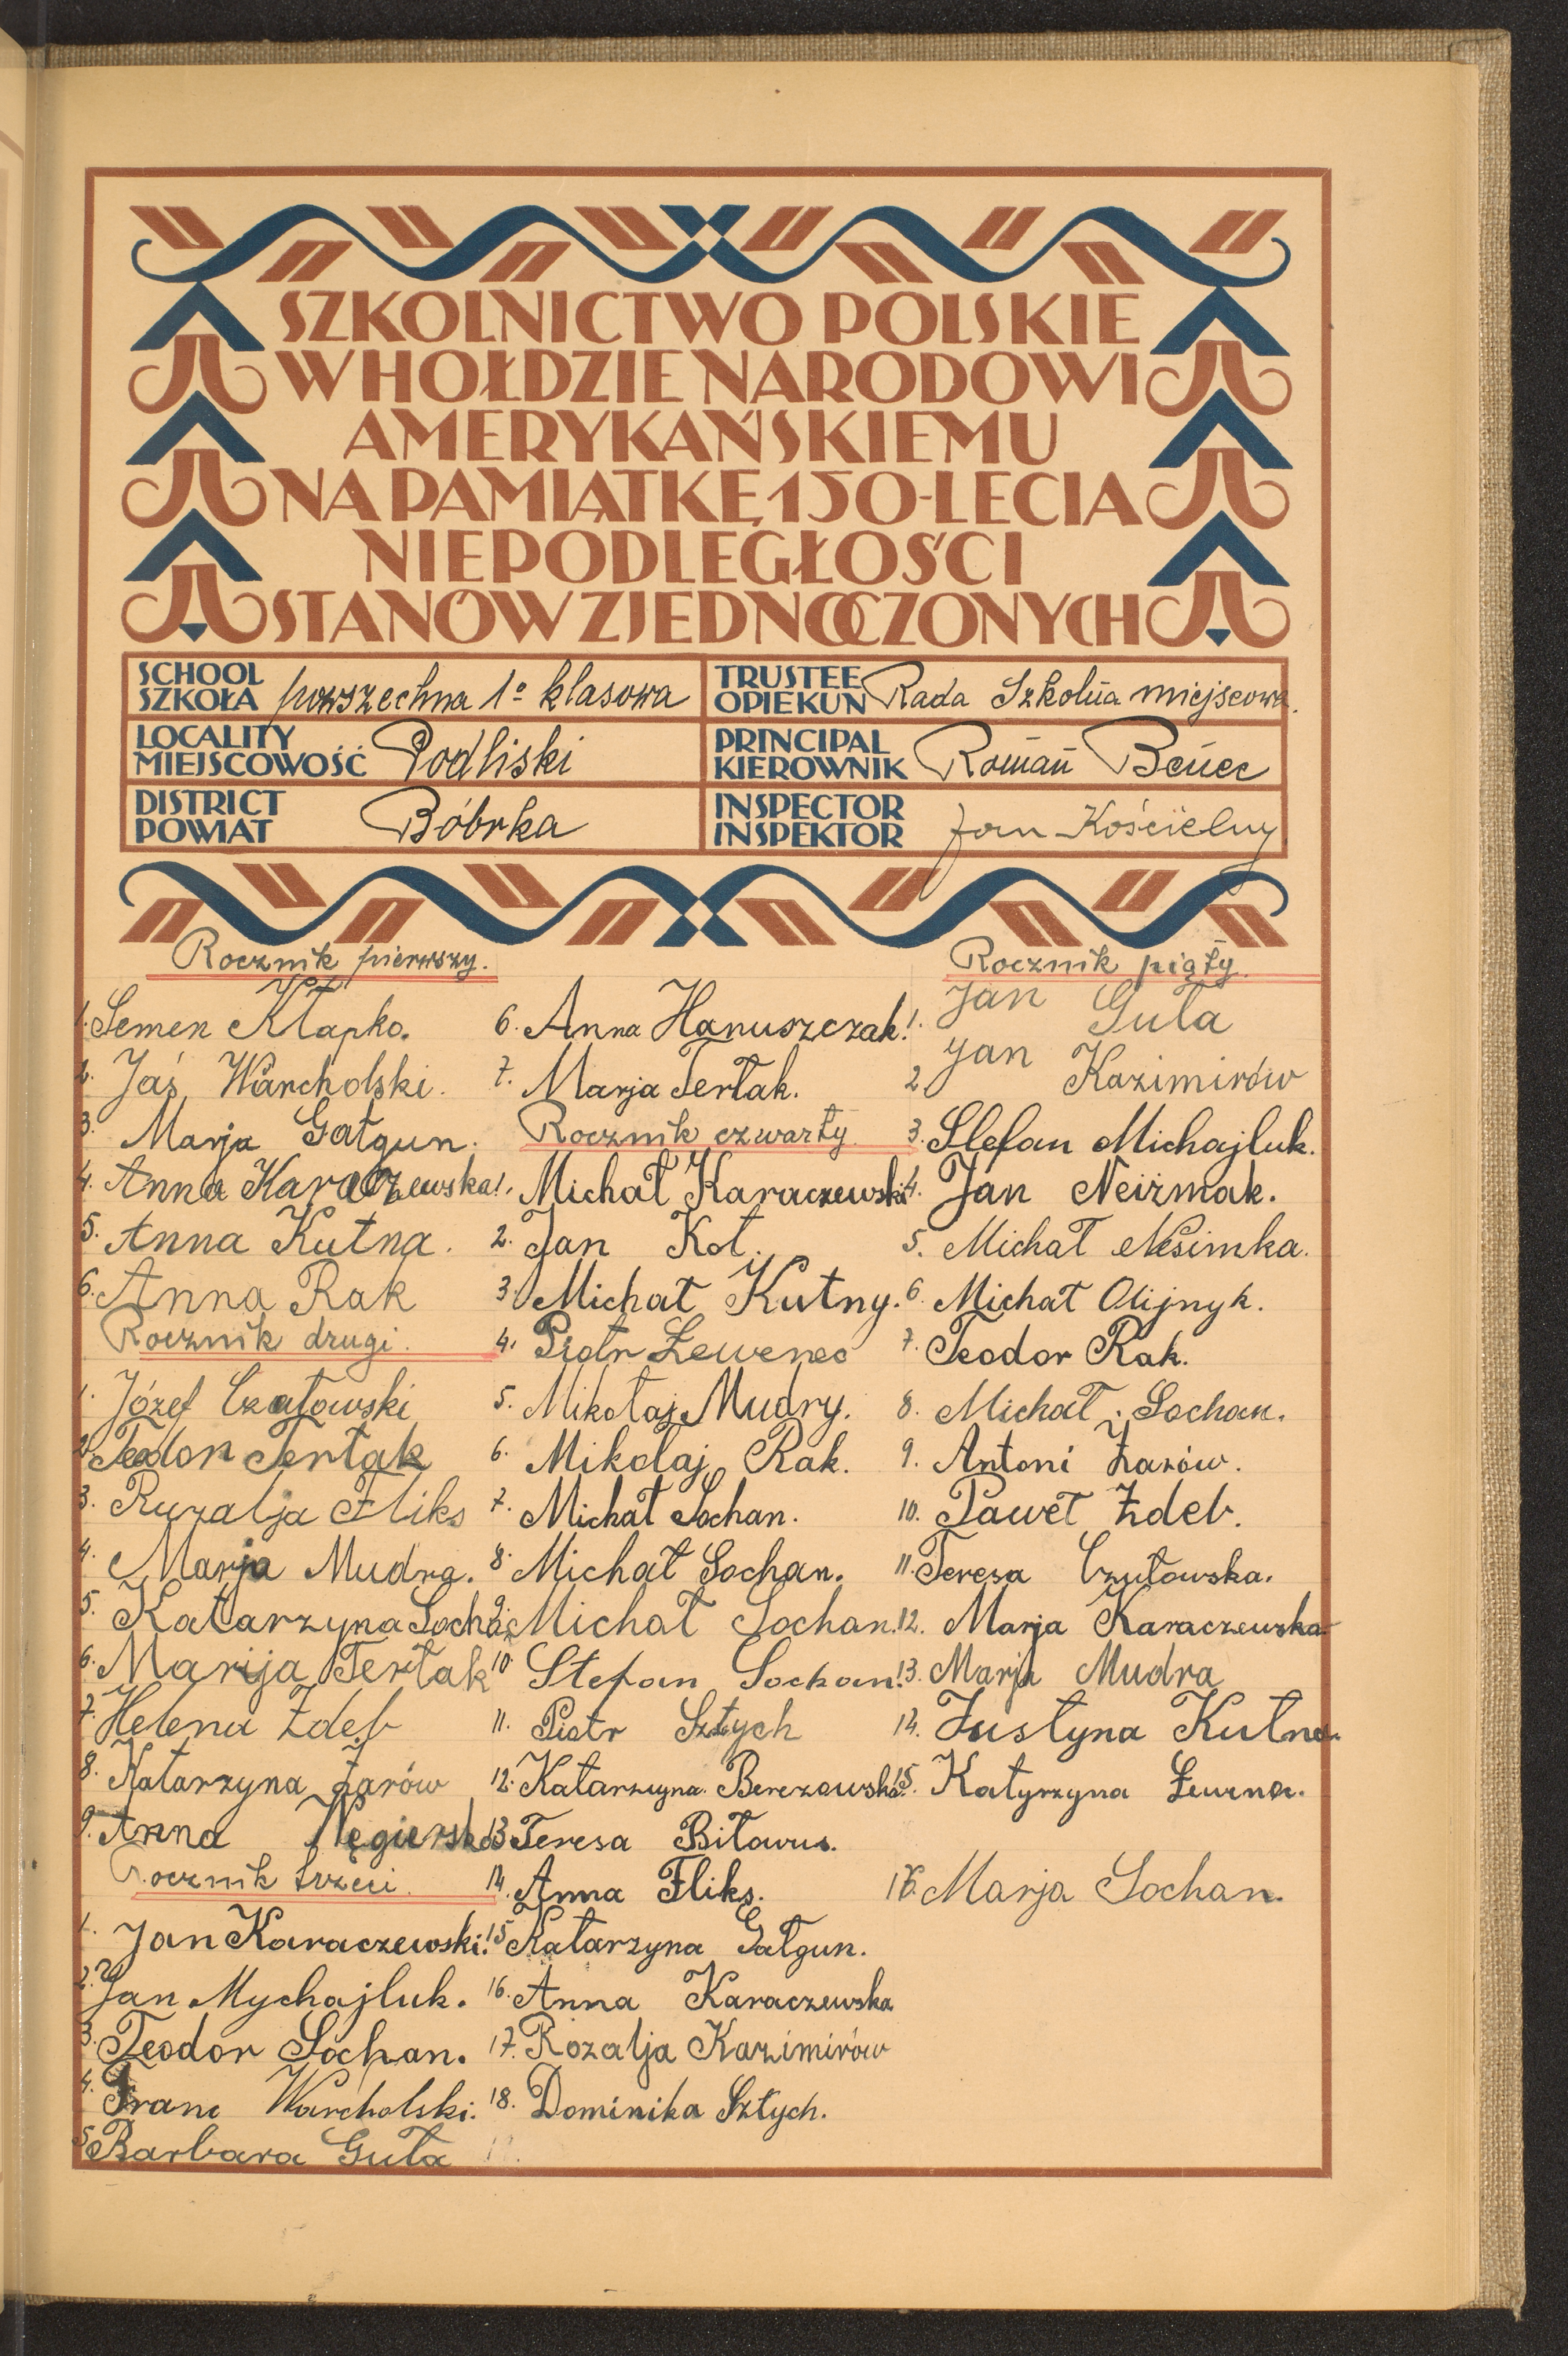 SZKOLNICTWO POLSKIE
W HOŁDZIE NARODOWI
AMERYKAŃSKIEMU
NA PAMIĄTKĘ 150-LECIA
NIEPODLEGŁOŚCI
STANÓW ZJEDNOCZONYCH
SCHOOL
SZKOŁA powszechna 1º klasowa
TRUSTEE
OPIEKUN Rada Szkolna miejscowa.
LOCALITY
MIEJSCOWOŚĆ Podliski
PRINCIPAL
KIEROWNIK Roman Benec
DISTRICT
POWIAT Bóbrka
INSPECTOR
INSPEKTOR Jan Kościelny
Rocznik pierwszy.
1. Semen Kłapko.
2. Jaś Warcholski.
3. Marja Gałgun.
4. Anna Karaczewska
5. Anna Kutna.
6. Anna Rak
Rocznik drugi.
1. Józef Czułowski
2. Teodor Terłak
3. Ruzalja Fliks
4. Marja Mudra.
5. Katarzyna Sochan
6. Marija Terłak
7. Helena Zdeb
8. Katarzyna Żarów
9. Anna Węgierska
Rocznik trzeci.
1. Jan Karaczewski.
2. Jan Mychajluk.
3. Teodor Sochan.
4. Franc Warcholski.
5. Barbara Guła
6. Anna Hanuszczak.
7. Marja Terłak.
Rocznik czwarty.
1. Michał Karaczewski
2. Jan Kot.
3. Michał Kutny.
4. Piotr Lewenec
5. Mikołaj Mudry.
6. Mikołaj Rak.
7. Michał Sochan.
8. Michał Sochan.
9. Michał Sochan.
10. Stefan Sochan.
11. Piotr Sztych
12. Katarzyna Berezowska.
13. Teresa Biłowus.
14. Anna Fliks.
15. Katarzyna Gałgun.
16. Anna Karaczewska
17. Rozalja Kazimirów
18. Dominika Sztych.
Rocznik piąty.
1. Jan Guła
2. Jan Kazimirów
3. Stefan Michajluk.
4. Jan Neiżmak.
5. Michał Nesimka.
6. Michał Olijnyk.
7. Teodor Rak.
8. Michał Sochan.
9. Antoni Żarów.
10. Paweł Zdeb.
11. Teresa Czułowska.
12. Marja Karaczewska.
13. Marja Mudra
14. Justyna Kutna.
15. Katyrzyna Lewena.
16. Marja Sochan.